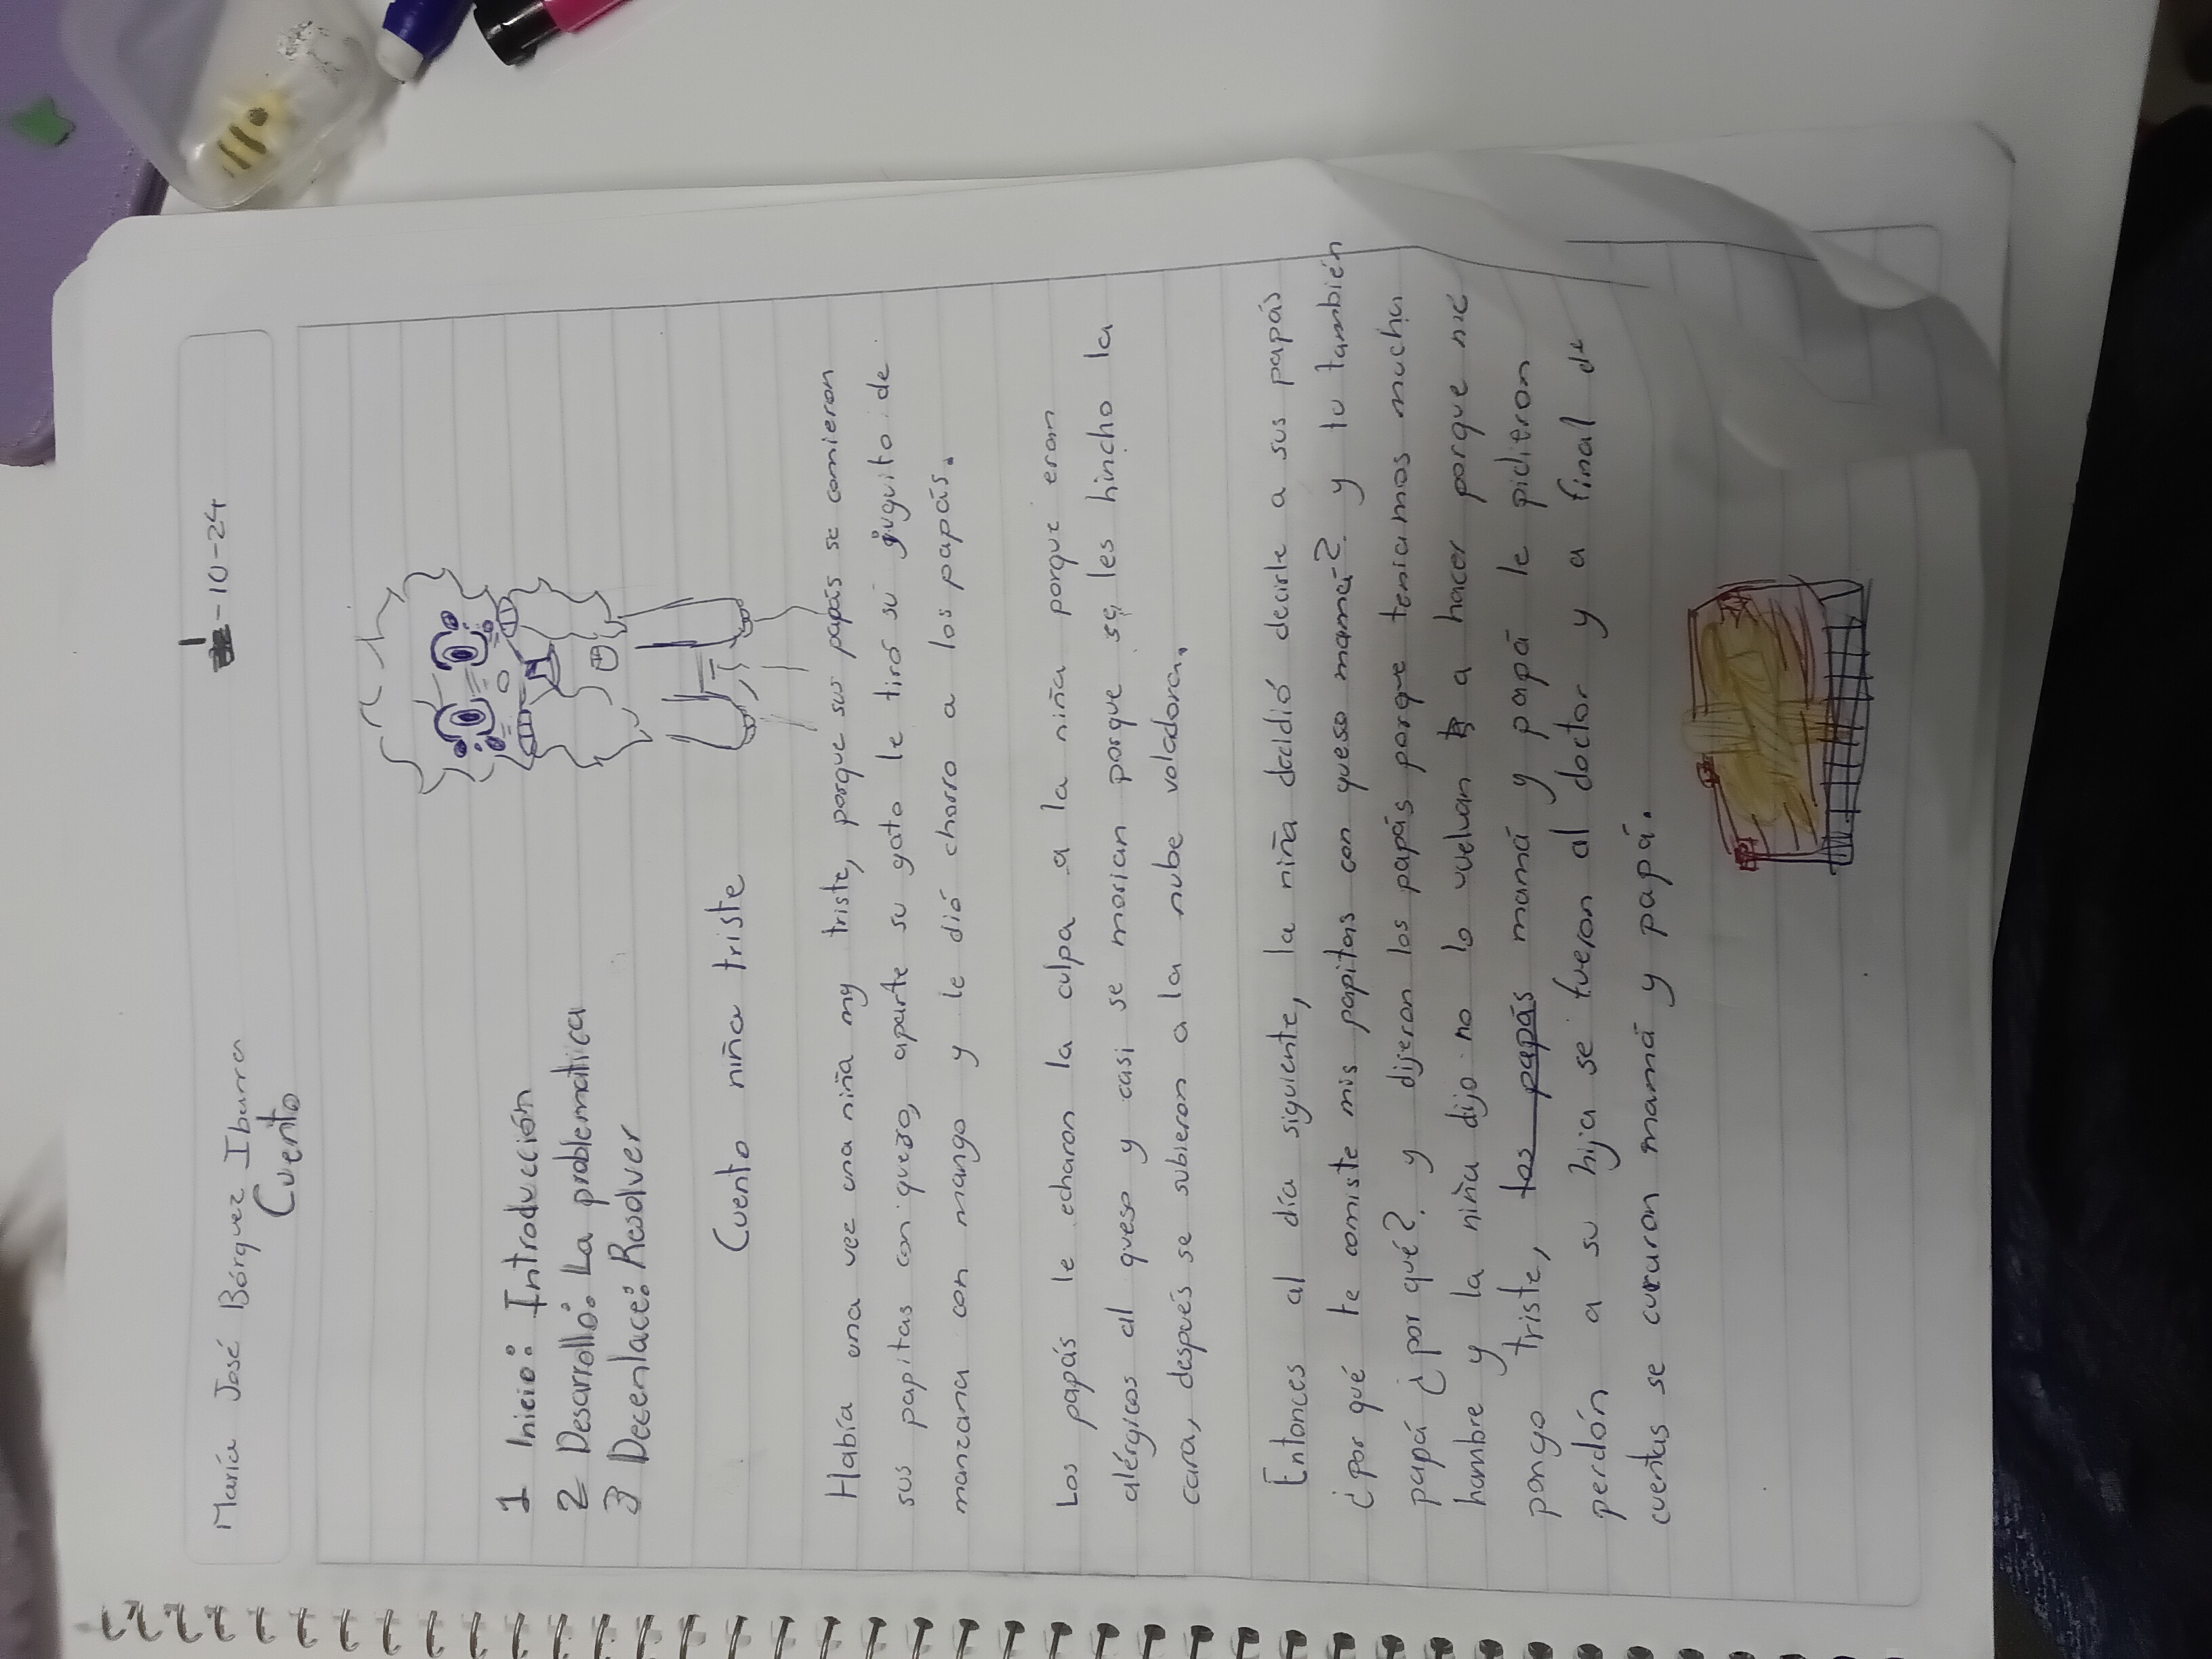 María José Bórquez Ibarra
1-10-24
Cuento
1 Inicio: Introducción
2 Desarrollo: La problematica
3 Decenlace: Resolver
Cuento niña triste
Había una vez una niña my triste, porque sus papás se comieron
sus papitas con queso, aparte su gato le tiró su juguito de
manzana con mango y le dió chorro a los papás.
Los papás le echaron la culpa a la niña porque eran
alérgicos al queso y casi se morian porque se les hincho la
cara, después se subieron a la nube voladora.
Entonces al día siguiente, la niña decidió decirle a sus papás
¿por qué te comiste mis papitas con queso mamá? y tu también
papá ¿por qué? y dijeron los papás porque teniamos mucha
hambre y la niña dijo no lo vuelvan a hacer porque me
pongo triste, los papás mamá y papá le piditron
perdón a su hija se fueron al doctor y a final de
cuentas se curaron mamá y papá.